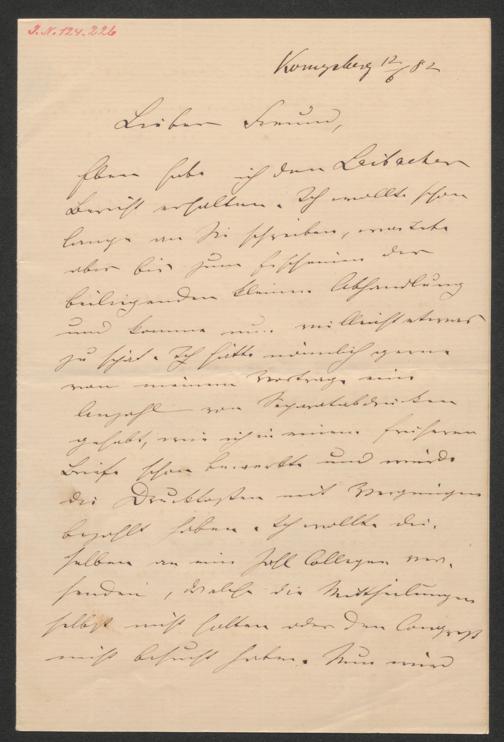 J.N. 124.226
Königsberg 12/6 82
Lieber Freund,
Eben habe ich den Laibacher
Bericht erhalten. Ich wollte schon
lange an Sie schreiben, wartete
aber bis zum Erscheinen der
beiliegenden kleinen Abhandlung
und komme nun vielleicht etwas
zu spät. Ich hätte nämlich gerne
von meinem Vortrage eine
Anzahl von Separatabdrücken
gehabt, wie ich in einem früheren
Briefe schon bemerkte und würde
die Druckkosten mit Vergnügen
bezahlt haben. Ich wollte die-
selben an eine Zahl Collegen ver-
senden, welche die Mittheilungen
selbst nicht halten oder den Congress
nicht besucht haben. Nun würd